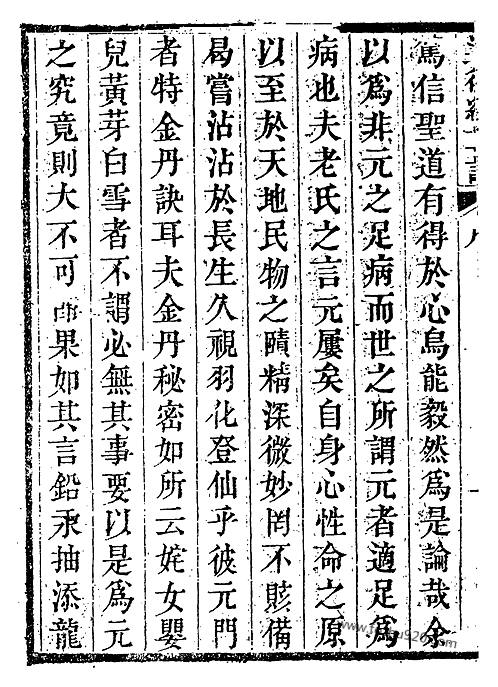 篤信聖道有得於心烏能毅然爲是論哉余
以爲非元之足病而世之所謂元者適足爲
病也夫老氏之言元屢矣自身心性命之原
以至於天地民物之賾精深微妙罔不賅備
曷嘗沾沾於長生久視羽化登仙乎彼元門
者特金丹訣耳夫金丹秘密如所云姹女嬰
兒黃芽白雪者不謂必無其事要以是爲元
之究竟則大不可 果如其言鉛汞抽添龍